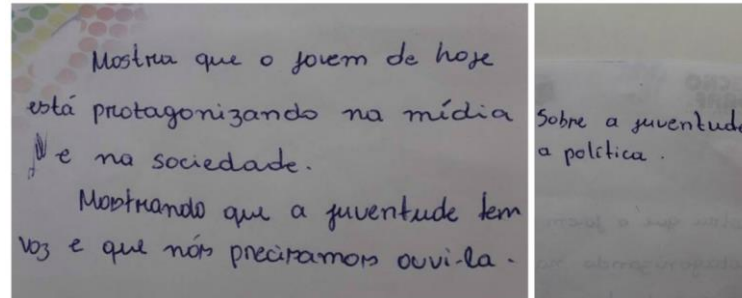 Mostra que o jovem de hoje
está protagonizando na mídia
e na sociedade.
Mostrando que a juventude tem
voz e que nós precisamos ouvi-la.
Sobre a juventude
a política.